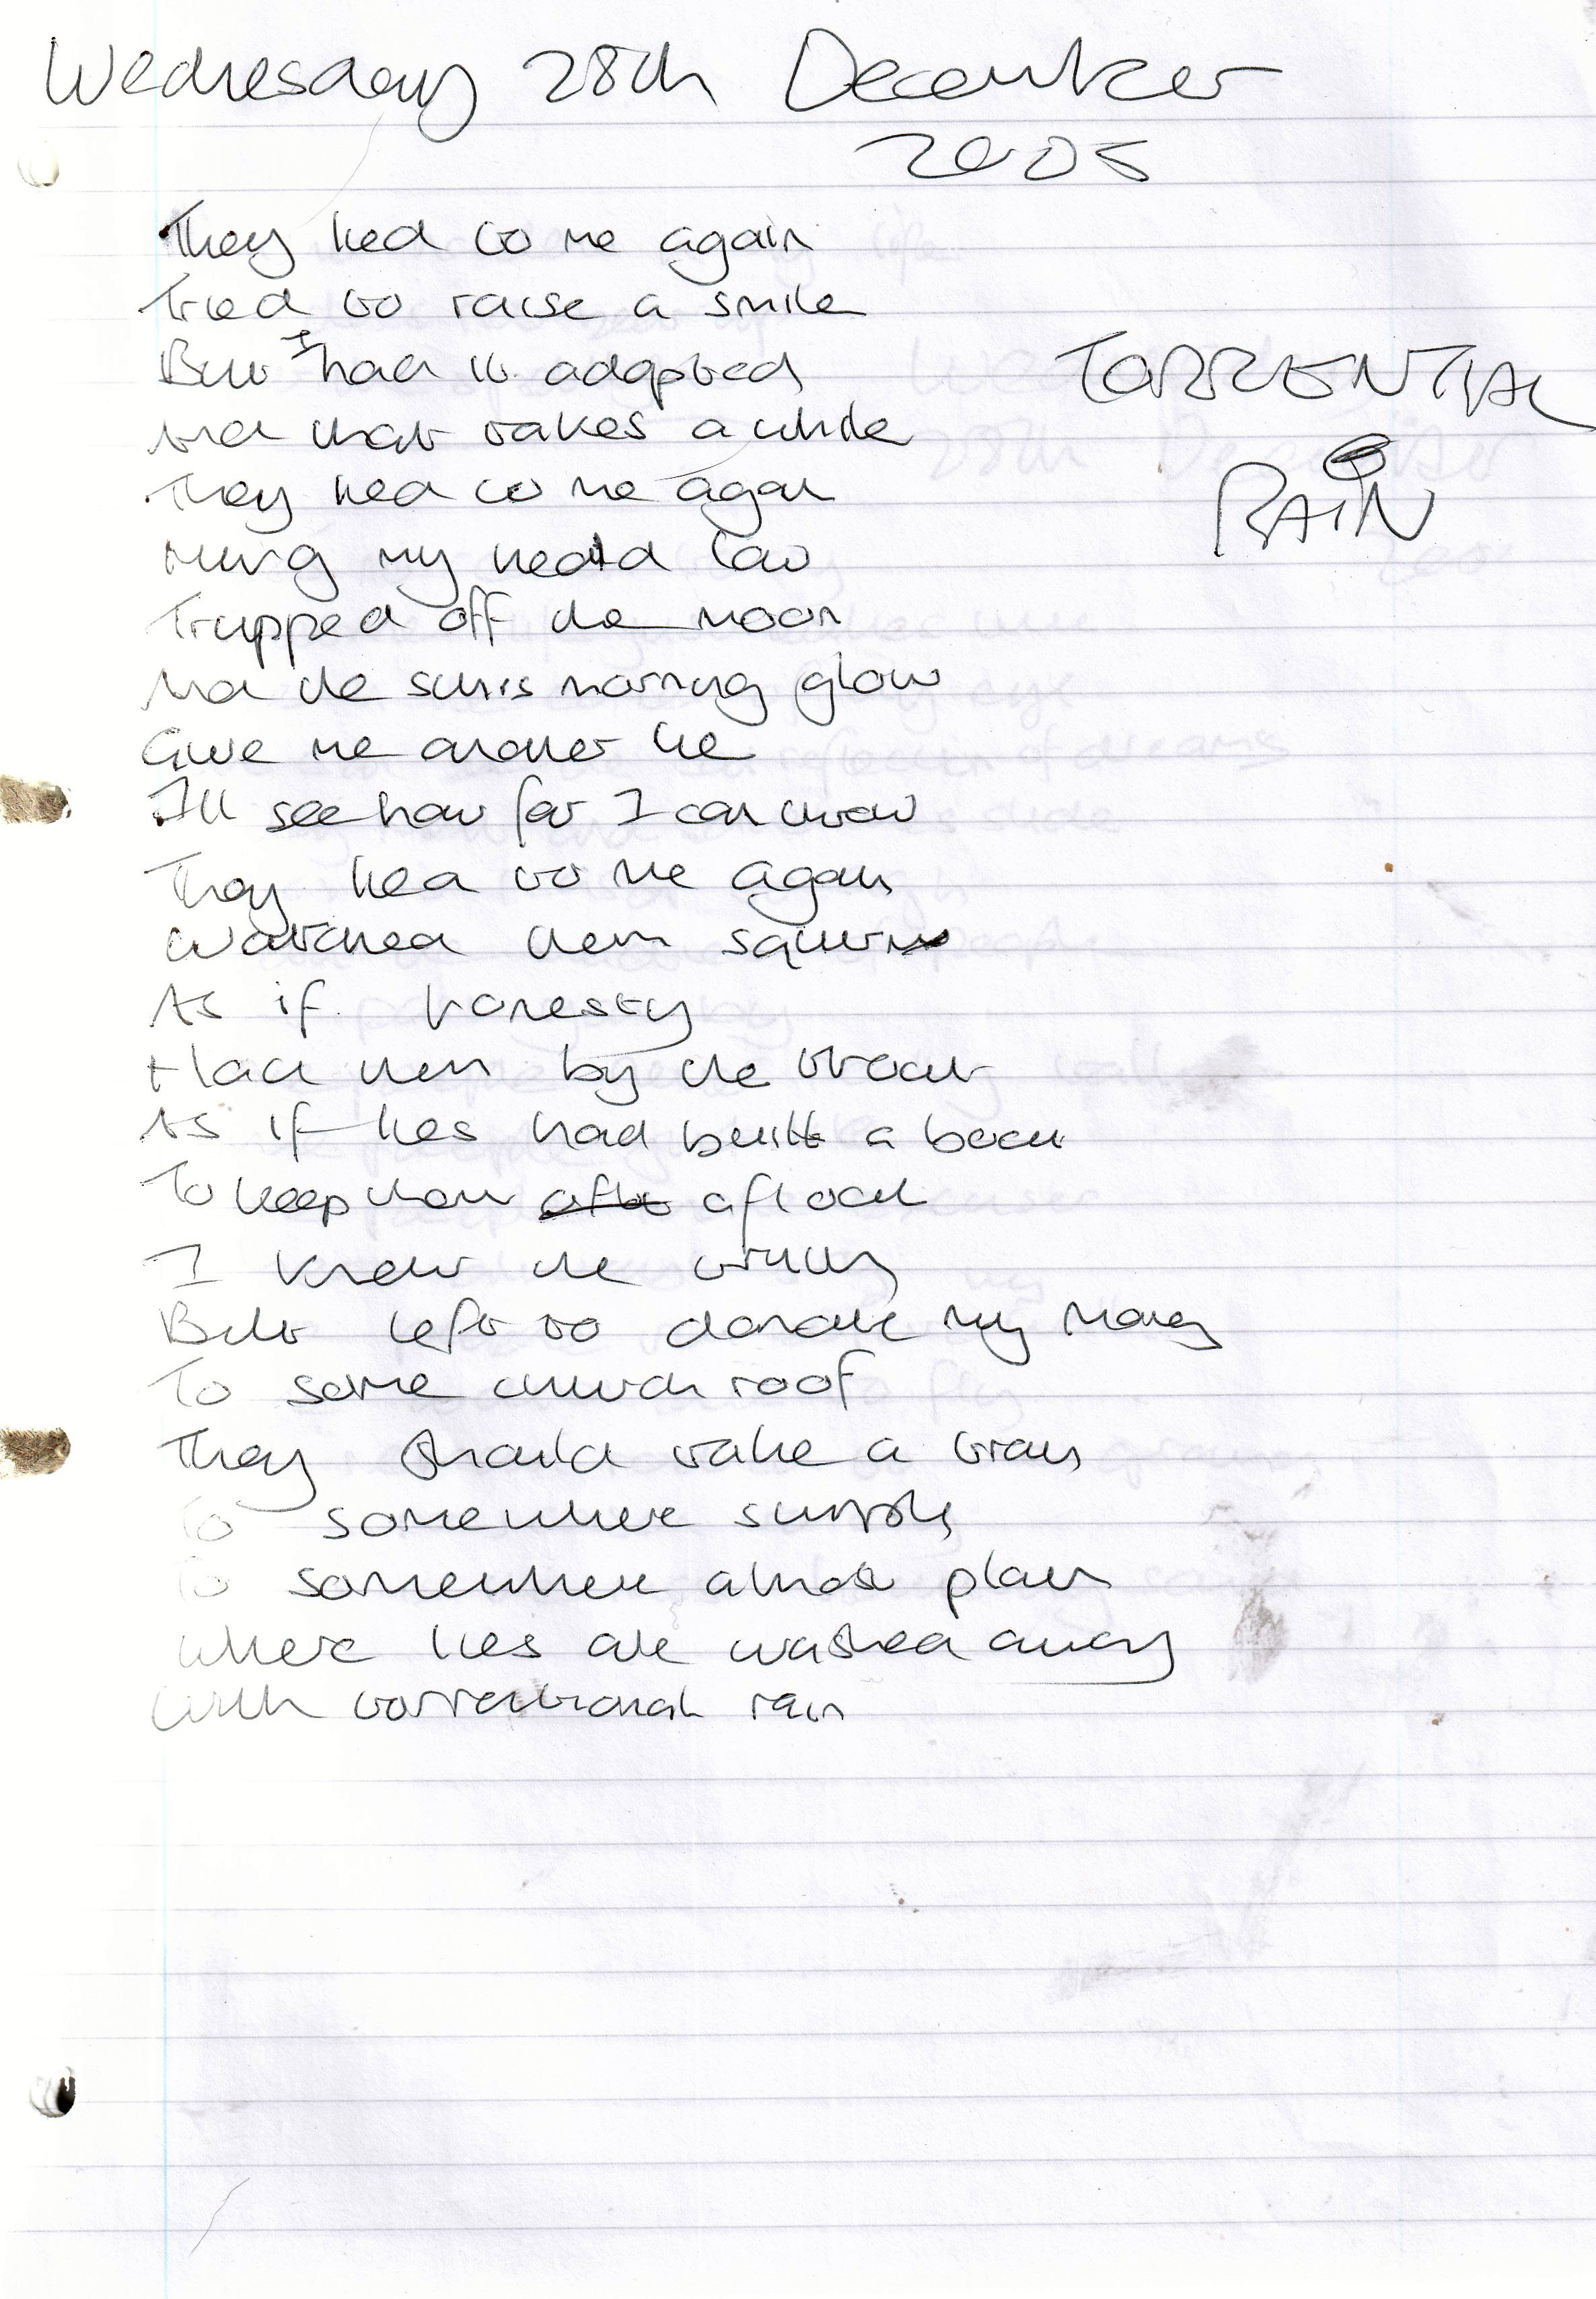 Wednesday 28th December
2005
They lied to me again
Tried to raise a smile
But I had it adapted
TORRENTIAL
And that takes a while
They lied to me again
RAIN
Hung my head low
Tripped off the moon
And the suns morning glow
Give me another lie
I'll see how far I can throw
They lied to me again
Watched them squirm
As if honesty
Had them by the throat
As if lies had built a boat
To keep them afloat
I knew the truth
But left to donate my money
To some church roof
They should take a train
To somewhere simple
To somewhere almost plain
where lies are washed away
With torrentional rain